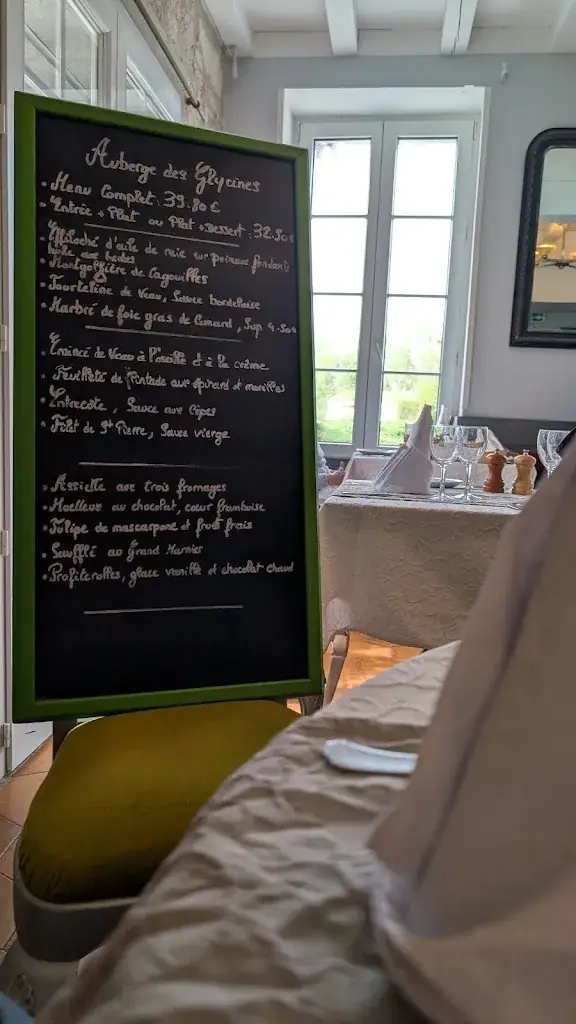 Auberge des Glycines
• Menu Complet: 39.80 €
• Entrée + Plat ou Plat + Dessert: 32.50 €
d'aile de raie sur poireaux fondants
aux herbes
• Montgolfière de Cagouilles
• Tourteline de Veau, Sauce bordelaise
• Marbré de foie gras de Canard, Sup 4.50€
• Emincé de Veau à l'oseille et à la crème
• Feuilleté de Pintade aux épinard et morilles
• Entrecôte, Sauce aux Cèpes
• Filet de St Pierre, Sauce vierge
• Assiette aux trois fromages
• Moelleux au chocolat, cœur framboise
• Tulipe de mascarpone et fruits frais
• Soufflé au Grand Marnier
• Profiterolles, glace vanille et chocolat chaud